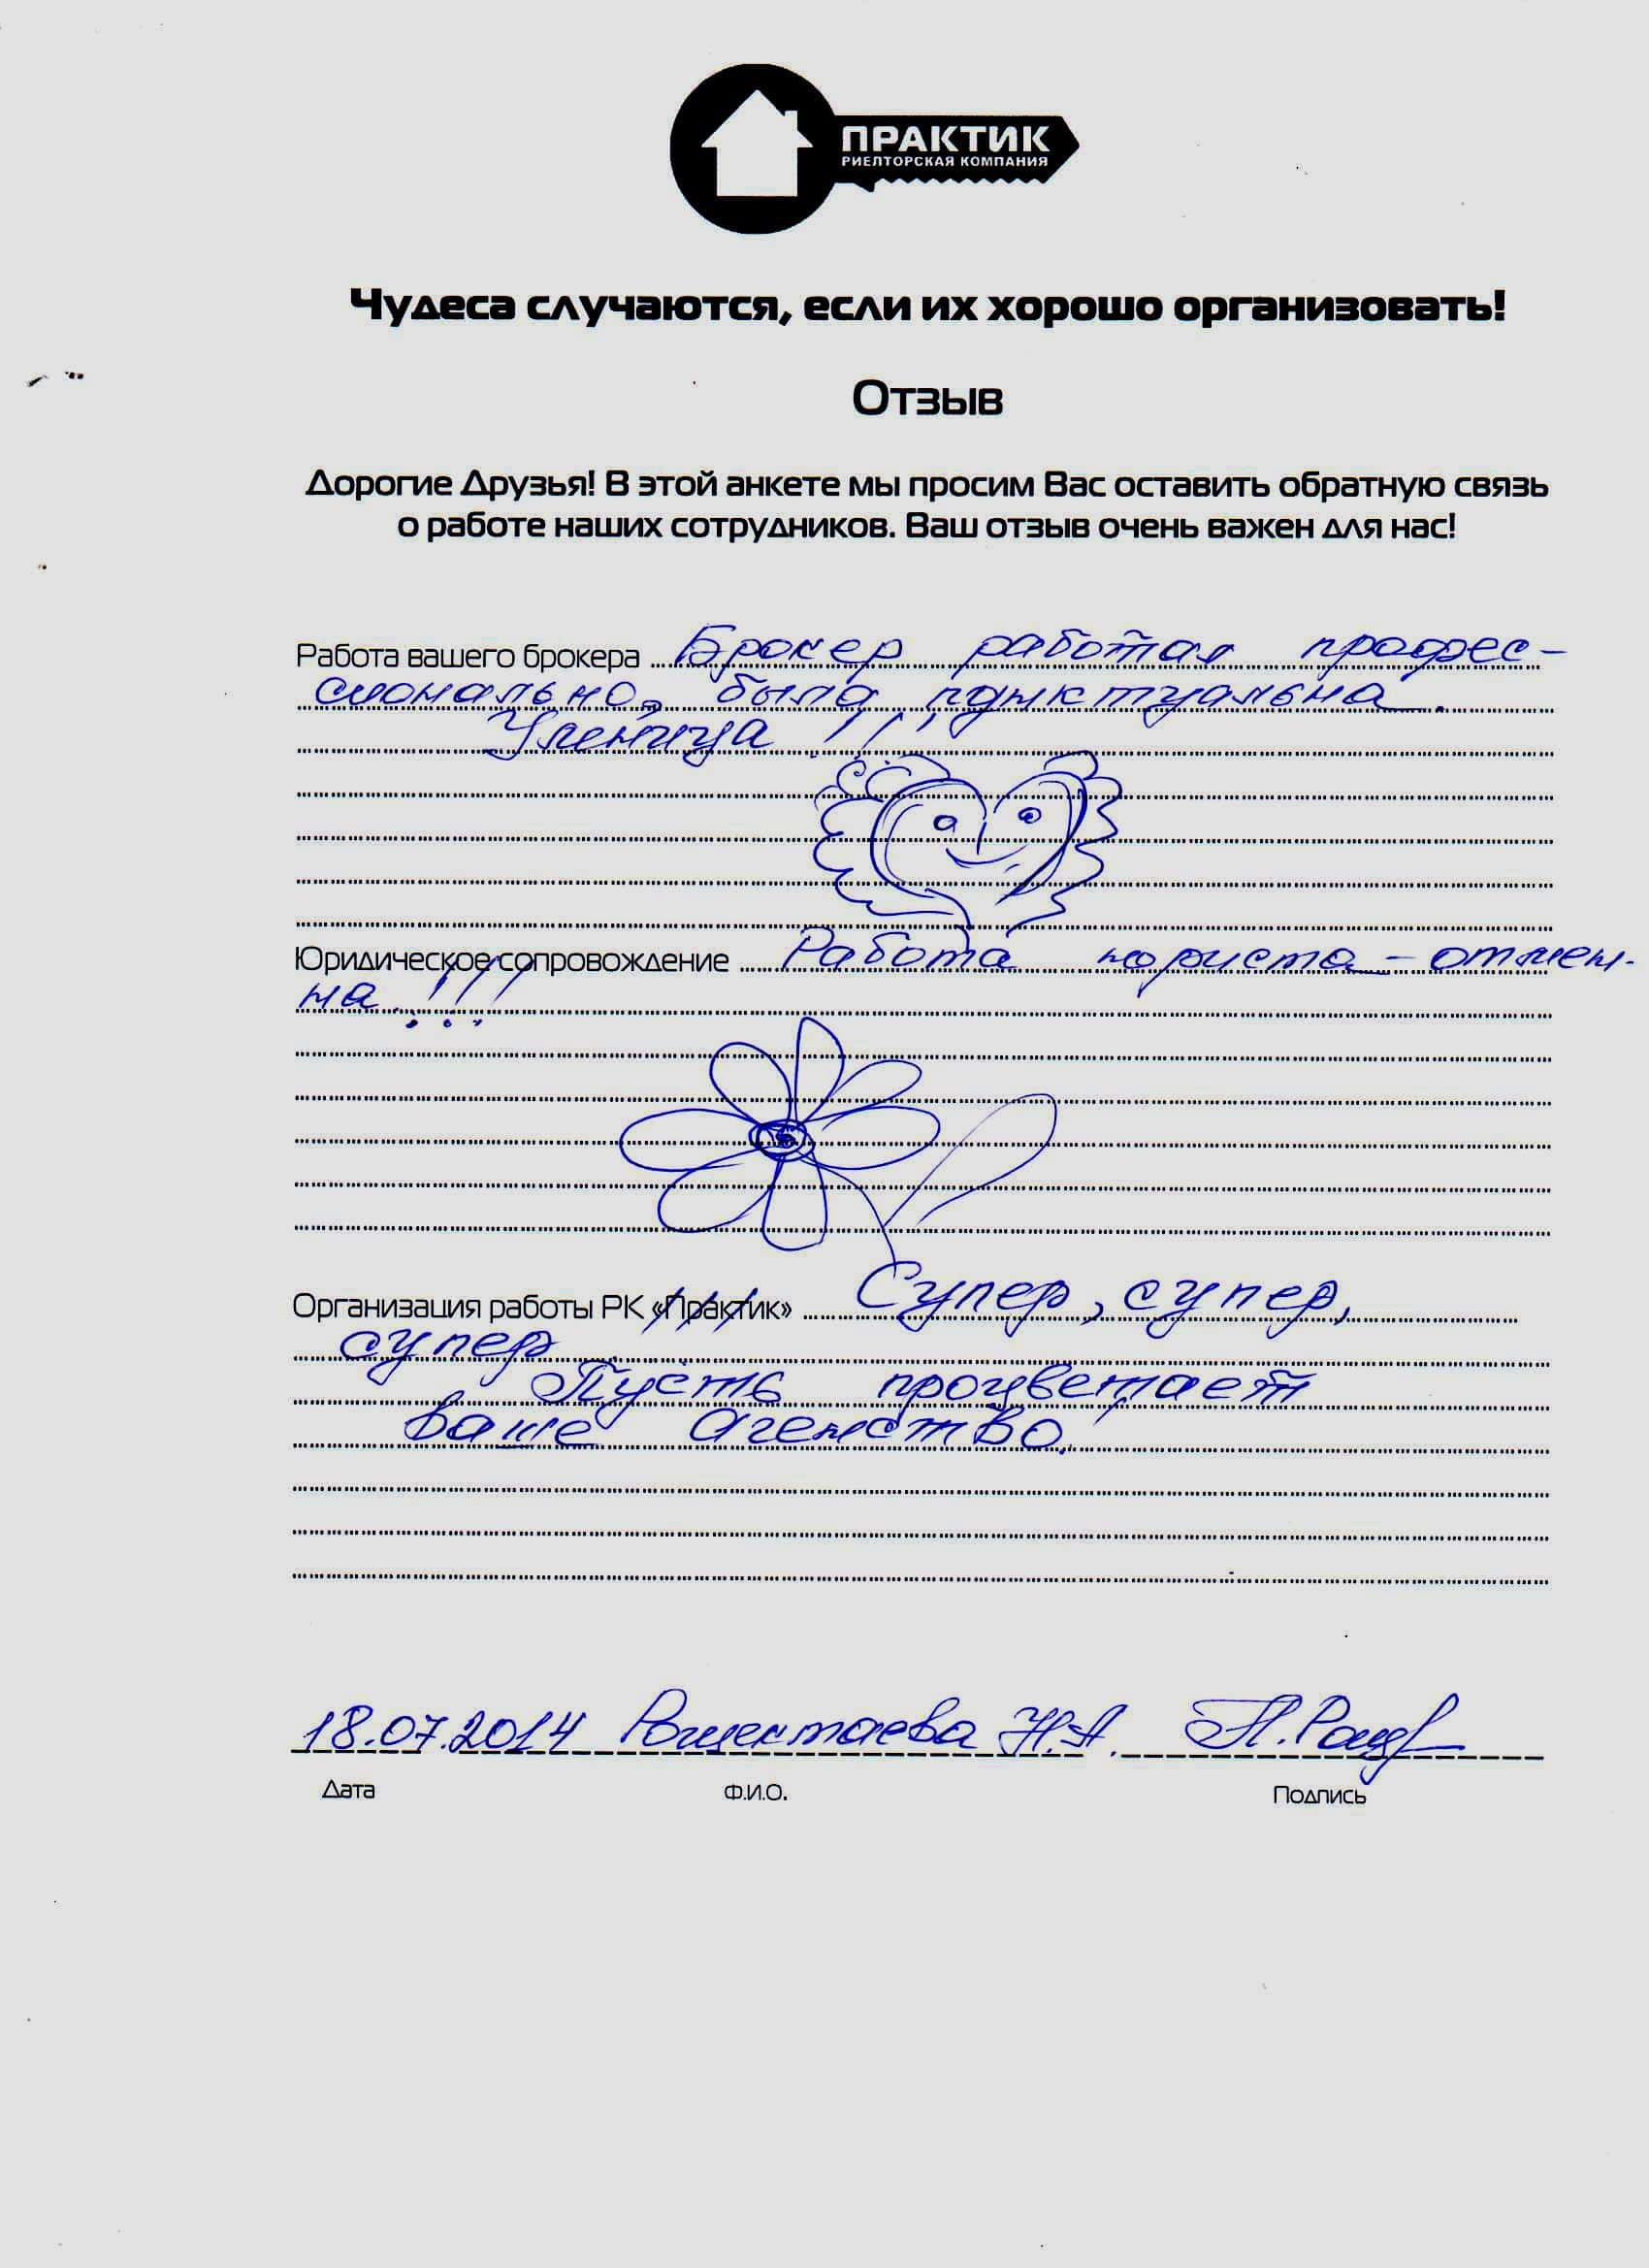 ПРАКТИК
РИЕЛТОРСКАЯ КОМПАНИЯ
Чудеса случаются, если их хорошо организовать!
Отзыв
Дорогие Друзья! В этой анкете мы просим Вас оставить обратную связь
о работе наших сотрудников. Ваш отзыв очень важен для нас!
Работа вашего брокера Брокер работал професс-
сионально, была пунктуальна.
Умница !!!
Юридическое сопровождение Работа юриста - отмен-
на !!!
Организация работы РК «Практик» Супер, супер,
супер !!!
Пусть процветает
ваше агенство.
18.07.2014 Н.А.
Дата Ф.И.О. Подпись